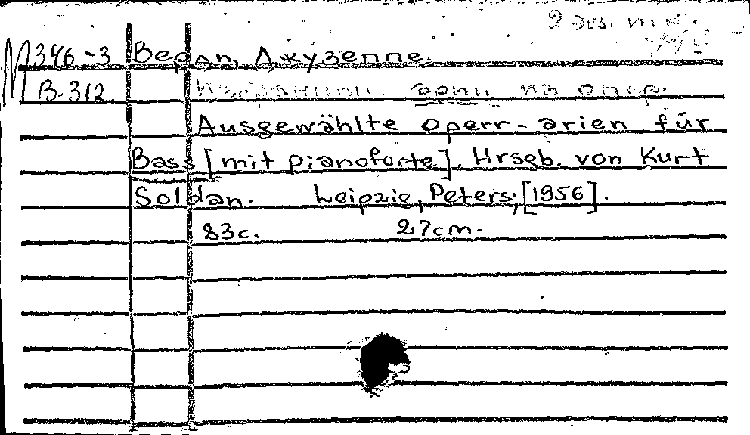 9 экз. м.п.к.
М346-3 Верди, Джузеппе.
В-312 Избранные арии из опер.
Ausgewählte opern-arien für
Bass [mit pianoforte]. Hrsgb. von Kurt
Soldan. Leipzig, Peters, [1956].
83c. 27cm.